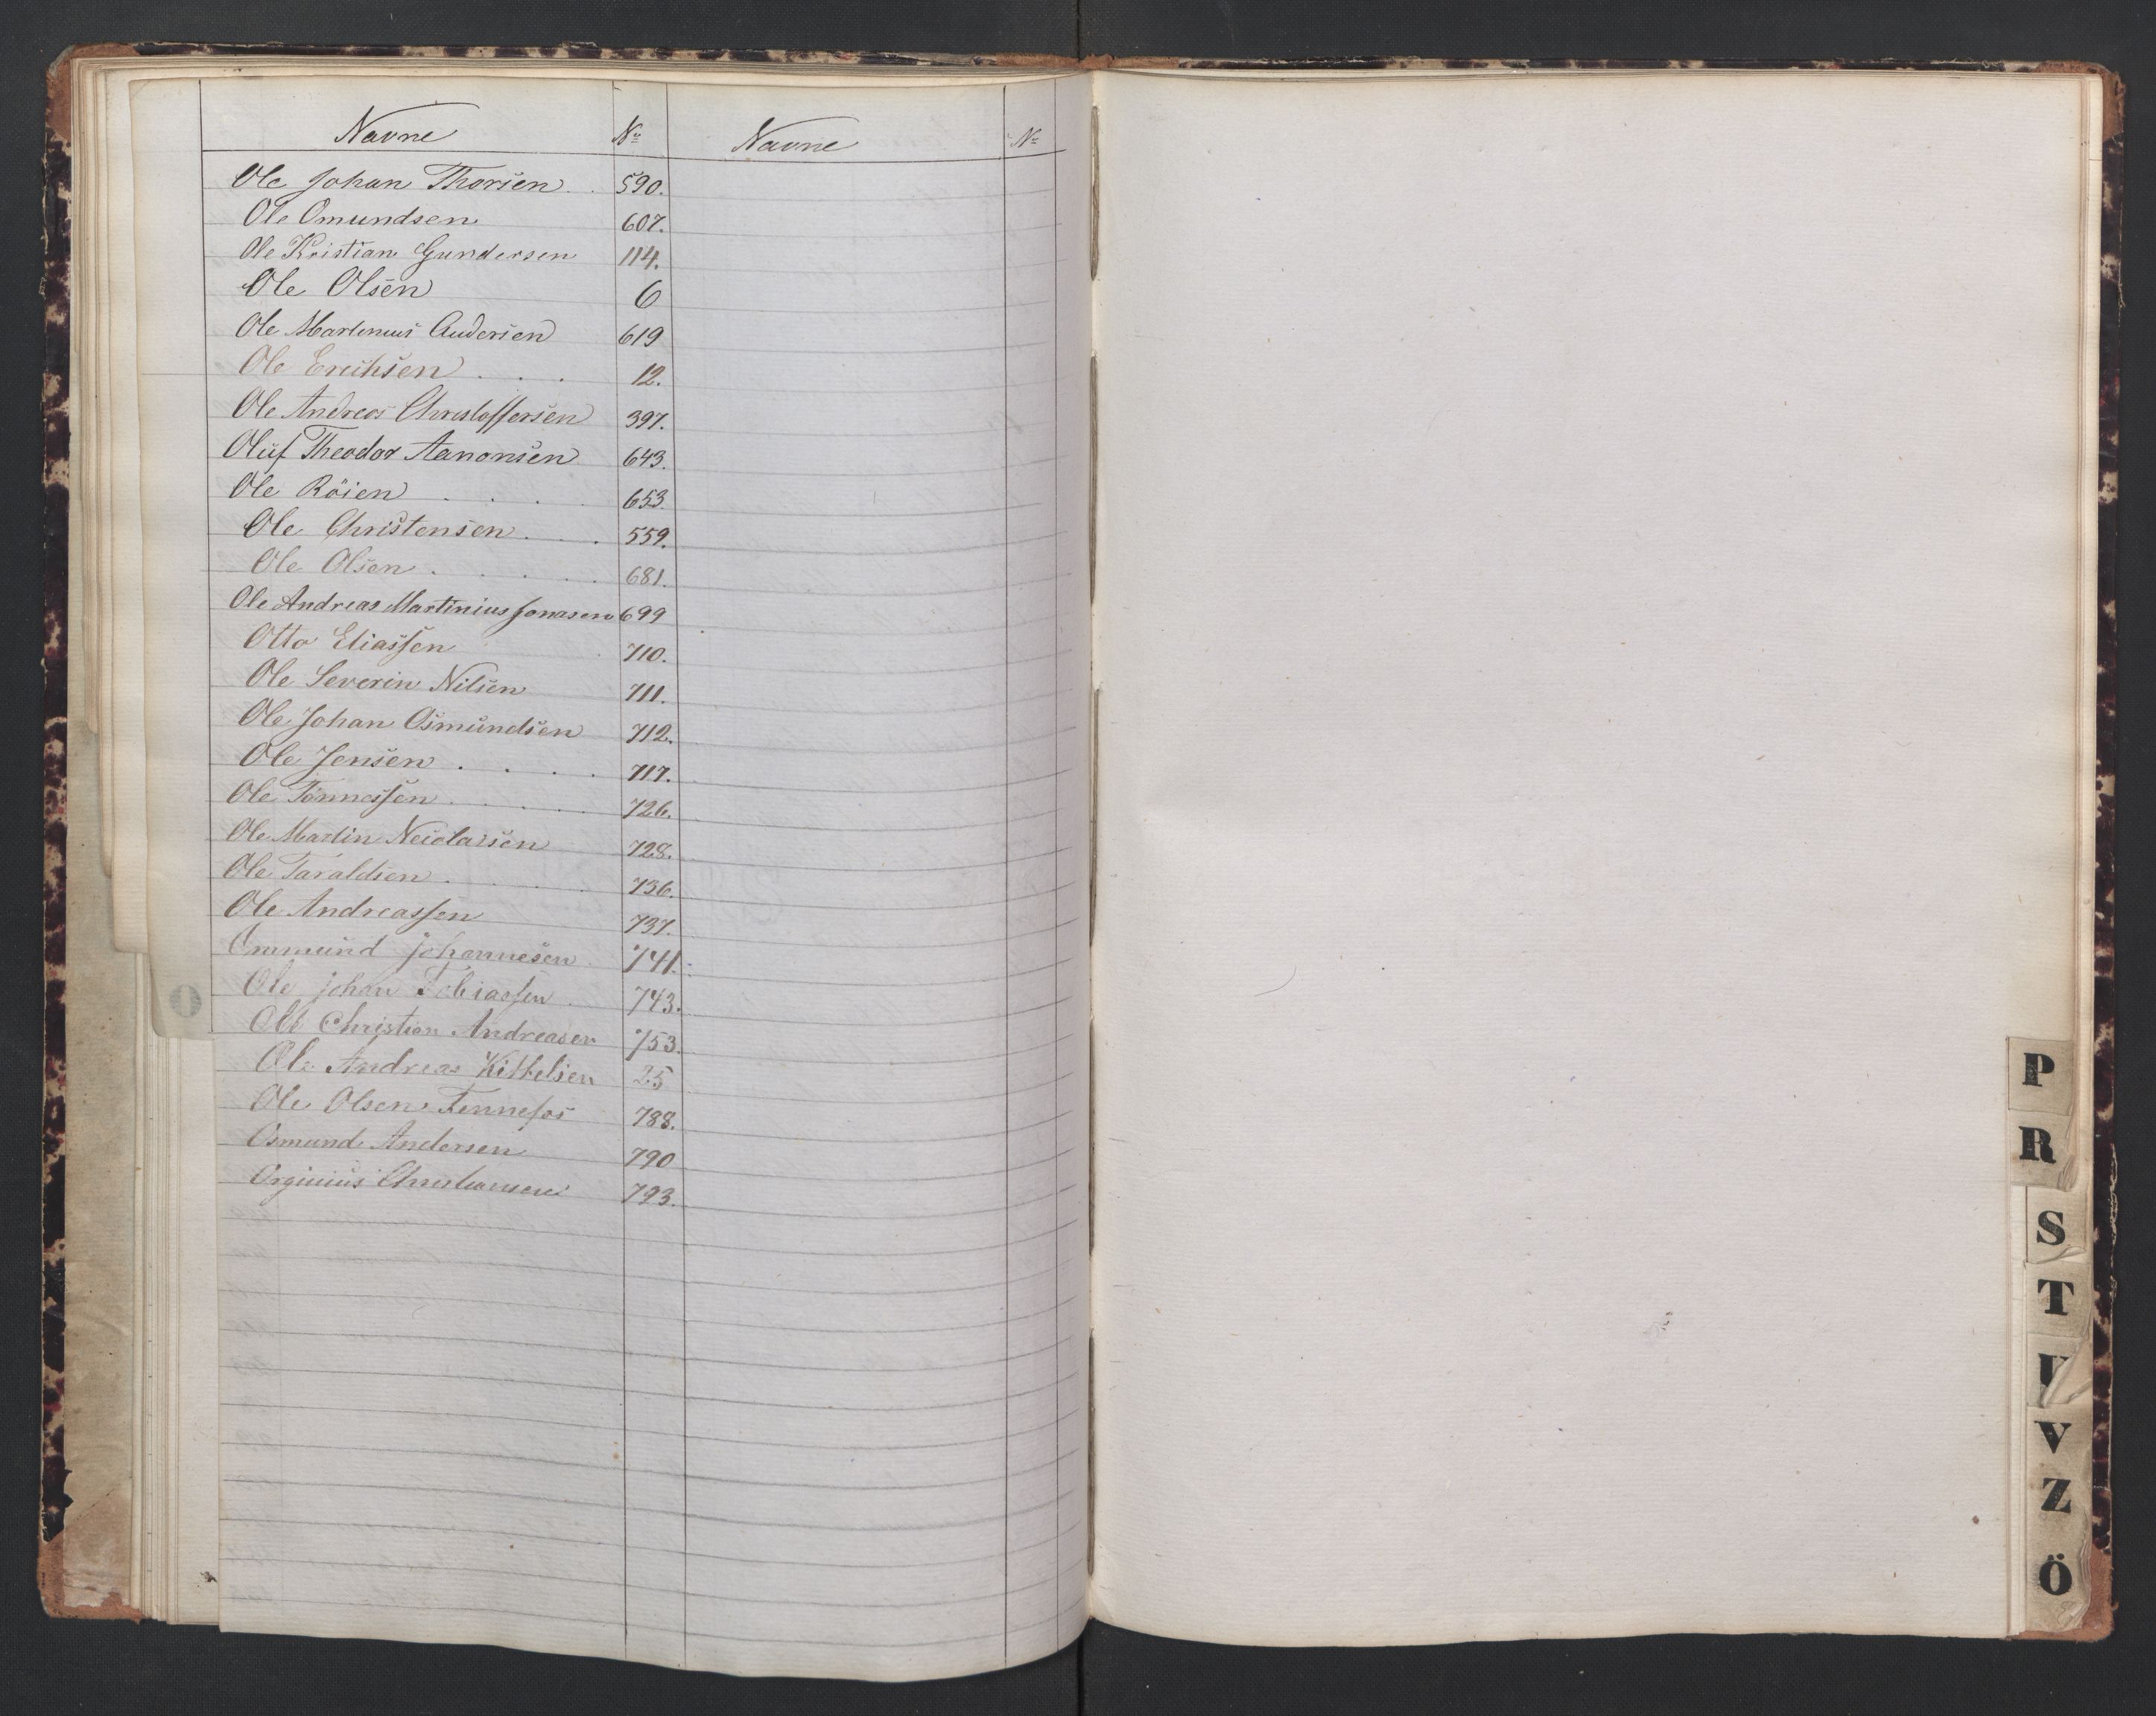 Navne No Navne No
Ole Johan Thorsen . . 590.
Ole Omundsen 607.
Ole Kristian Gundersen 114.
Ole Olsen 6
Ole Martinius Andersen 619
Ole Erichsen . . . 12.
Ole Andreas Christoffersen 397.
Oluf Theodor Aanonsen 643.
Ole Röien . . . . 653.
Ole Christensen . . . 559.
Ole Olsen . . . . . 681.
Ole Andreas Martinius Jonasen 699
Otto Eliassen . 710.
Ole Severin Nilsen 711.
Ole Johan Osmundsen 712.
Ole Jensen . . . . 717.
Ole Tönnessen . . . . 726.
Ole Martin Neiolaisen 728.
Ole Taraldsen . . . . 736.
Ole Andreassen 737.
Ommund Johannesen . 741.
Ole Johan Tobiassen . 743.
Ole Christian Andreasen 753.
Ole Andreas Kittelsen 25
Ole Olsen Fennefos 788.
Osmund Andersen 790
Orginius Christiansen 793.
O
P
R
S
T
U
V
Z
Ö